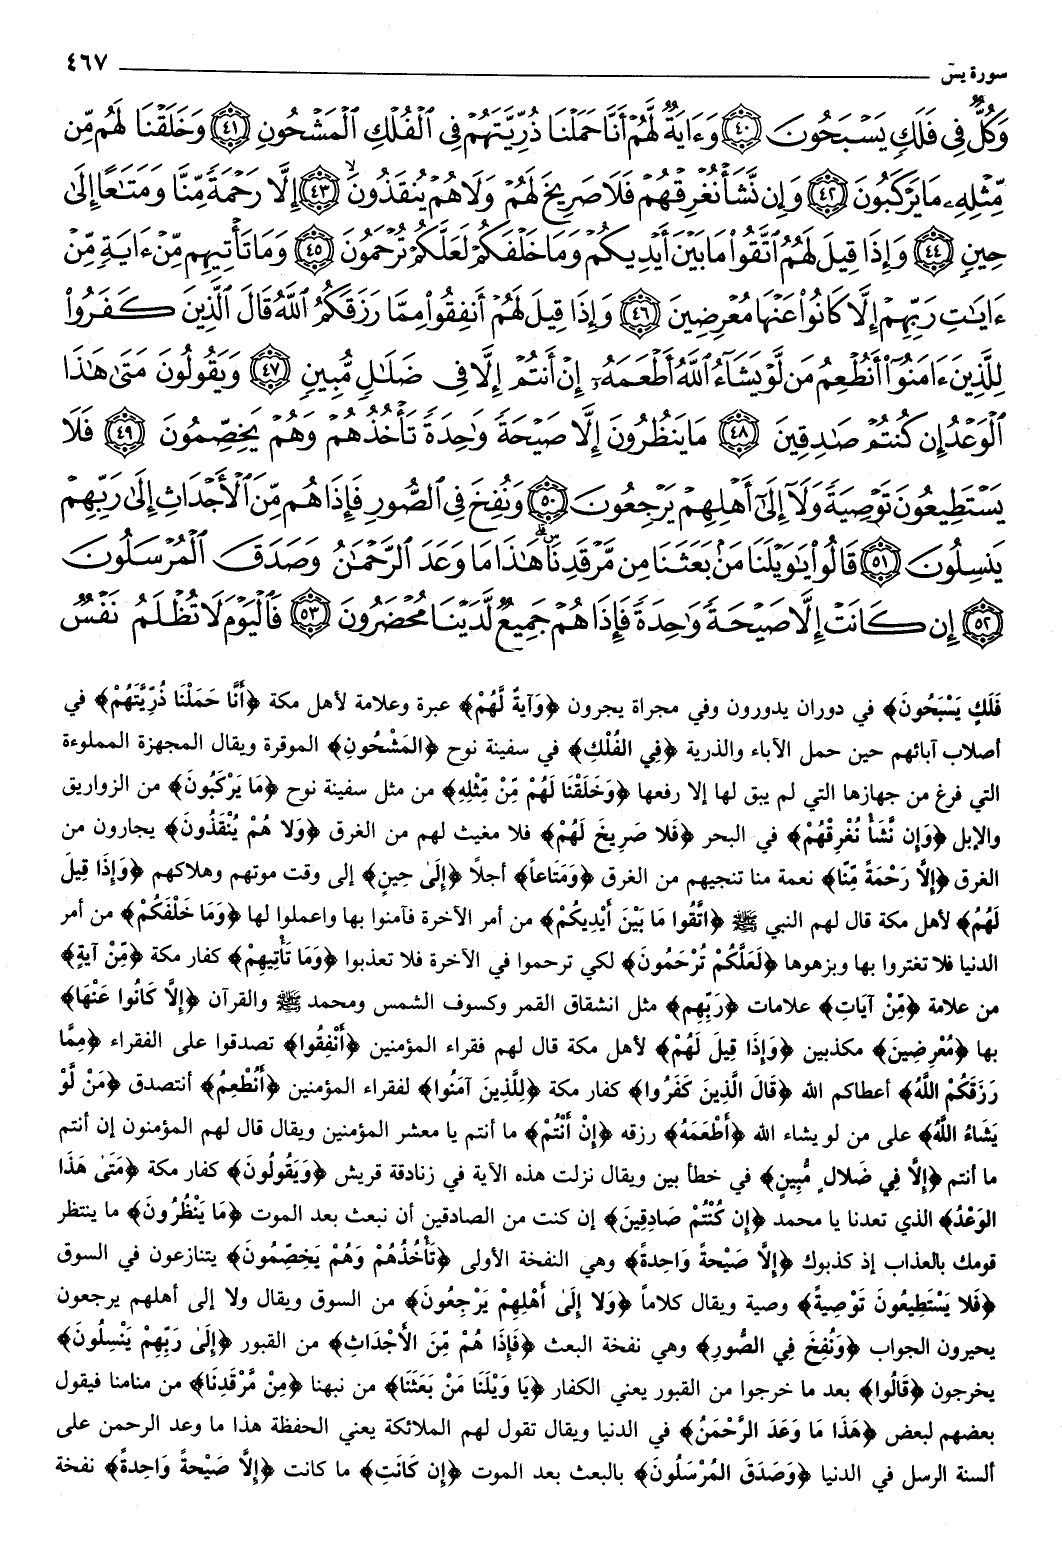 سورة يسۤ ٤٦٧
وَكُلٌّ فِى فَلَكٍ يَسْبَحُونَ ٤٠ وَءَايَةٌ لَّهُمْ أَنَّا حَمَلْنَا ذُرِّيَّتَهُمْ فِى ٱلْفُلْكِ ٱلْمَشْحُونِ ٤١ وَخَلَقْنَا لَهُم مِّن
مِّثْلِهِۦ مَا يَرْكَبُونَ ٤٢ وَإِن نَّشَأْ نُغْرِقْهُمْ فَلَا صَرِيخَ لَهُمْ وَلَا هُمْ يُنقَذُونَ ٤٣ إِلَّا رَحْمَةً مِّنَّا وَمَتَٰعًا إِلَىٰ
حِينٍ ٤٤ وَإِذَا قِيلَ لَهُمُ ٱتَّقُوا۟ مَا بَيْنَ أَيْدِيكُمْ وَمَا خَلْفَكُمْ لَعَلَّكُمْ تُرْحَمُونَ ٤٥ وَمَا تَأْتِيهِم مِّنْ ءَايَةٍ مِّنْ
ءَايَٰتِ رَبِّهِمْ إِلَّا كَانُوا۟ عَنْهَا مُعْرِضِينَ ٤٦ وَإِذَا قِيلَ لَهُمْ أَنفِقُوا۟ مِمَّا رَزَقَكُمُ ٱللَّهُ قَالَ ٱلَّذِينَ كَفَرُوا۟
لِلَّذِينَ ءَامَنُوٓا۟ أَنُطْعِمُ مَن لَّوْ يَشَآءُ ٱللَّهُ أَطْعَمَهُۥٓ إِنْ أَنتُمْ إِلَّا فِى ضَلَٰلٍ مُّبِينٍ ٤٧ وَيَقُولُونَ مَتَىٰ هَٰذَا
ٱلْوَعْدُ إِن كُنتُمْ صَٰدِقِينَ ٤٨ مَا يَنظُرُونَ إِلَّا صَيْحَةً وَٰحِدَةً تَأْخُذُهُمْ وَهُمْ يَخِصِّمُونَ ٤٩ فَلَا
يَسْتَطِيعُونَ تَوْصِيَةً وَلَآ إِلَىٰٓ أَهْلِهِمْ يَرْجِعُونَ ٥٠ وَنُفِخَ فِى ٱلصُّورِ فَإِذَا هُم مِّنَ ٱلْأَجْدَاثِ إِلَىٰ رَبِّهِمْ
يَنسِلُونَ ٥١ قَالُوا۟ يَٰوَيْلَنَا مَنۢ بَعَثَنَا مِن مَّرْقَدِنَا ۜ هَٰذَا مَا وَعَدَ ٱلرَّحْمَٰنُ وَصَدَقَ ٱلْمُرْسَلُونَ
٥٢ إِن كَانَتْ إِلَّا صَيْحَةً وَٰحِدَةً فَإِذَا هُمْ جَمِيعٌ لَّدَيْنَا مُحْضَرُونَ ٥٣ فَٱلْيَوْمَ لَا تُظْلَمُ نَفْسٌ
فَلَكٍ يَسْبَحُونَ﴾ في دوران يدورون وفي مجراة يجرون ﴿وَآيَةٌ لَّهُمْ﴾ عبرة وعلامة لأهل مكة ﴿أَنَّا حَمَلْنَا ذُرِّيَّتَهُمْ﴾ في
أصلاب آبائهم حين حمل الآباء والذرية ﴿فِي الفُلْكِ﴾ في سفينة نوح ﴿المَشْحُونِ﴾ الموقرة ويقال المجهزة المملوءة
التي فرغ من جهازها التي لم يبق لها إلا رفعها ﴿وَخَلَقْنَا لَهُمْ مِّنْ مِّثْلِهِ﴾ من مثل سفينة نوح ﴿مَا يَرْكَبُونَ﴾ من الزواريق
والإبل ﴿وَإِن نَّشَأْ نُغْرِقْهُمْ﴾ في البحر ﴿فَلا صَرِيخَ لَهُمْ﴾ فلا مغيث لهم من الغرق ﴿وَلا هُمْ يُنْقَذُونَ﴾ يجارون من
الغرق ﴿إِلَّا رَحْمَةً مِّنَّا﴾ نعمة منا تنجيهم من الغرق ﴿وَمَتَاعاً﴾ أجلاً ﴿إِلَىٰ حِينٍ﴾ إلى وقت موتهم وهلاكهم ﴿وَإِذَا قِيلَ
لَهُمُ﴾ لأهل مكة قال لهم النبي ﷺ ﴿اتَّقُوا مَا بَيْنَ أَيْدِيكُمْ﴾ من أمر الآخرة فآمنوا بها واعملوا لها ﴿وَمَا خَلْفَكُمْ﴾ من أمر
الدنيا فلا تغتروا بها وبزهوها ﴿لَعَلَّكُمْ تُرْحَمُونَ﴾ لكي ترحموا في الآخرة فلا تعذبوا ﴿وَمَا تَأْتِيهِمْ﴾ كفار مكة ﴿مِّنْ آيَةٍ﴾
من علامة ﴿مِّنْ آيَاتِ﴾ علامات ﴿رَبِّهِم﴾ مثل انشقاق القمر وكسوف الشمس ومحمد ﷺ والقرآن ﴿إِلَّا كَانُوا عَنْهَا﴾
بها ﴿مُعْرِضِينَ﴾ مكذبين ﴿وَإِذَا قِيلَ لَهُمْ﴾ لأهل مكة قال لهم فقراء المؤمنين ﴿أَنْفِقُوا﴾ تصدقوا على الفقراء ﴿مِمَّا
رَزَقَكُمْ اللَّهُ﴾ أعطاكم الله ﴿قَالَ الَّذِينَ كَفَرُوا﴾ كفار مكة ﴿لِلَّذِينَ آمَنُوا﴾ لفقراء المؤمنين ﴿أَنُطْعِمُ﴾ أنتصدق ﴿مَنْ لَوْ
يَشَاءُ اللَّهُ﴾ على من لو يشاء الله ﴿أَطْعَمَهُ﴾ رزقه ﴿إِنْ أَنْتُمْ﴾ ما أنتم يا معشر المؤمنين ويقال قال لهم المؤمنون إن أنتم
ما أنتم ﴿إِلَّا فِي ضَلالٍ مُّبِينٍ﴾ في خطأ بين ويقال نزلت هذه الآية في زنادقة قريش ﴿وَيَقُولُونَ﴾ كفار مكة ﴿مَتَىٰ هَذَا
الوَعْدُ﴾ الذي تعدنا يا محمد ﴿إِن كُنْتُمْ صَادِقِينَ﴾ إن كنت من الصادقين أن نبعث بعد الموت ﴿مَا يَنْظُرُونَ﴾ ما ينتظر
قومك بالعذاب إذ كذبوك ﴿إِلَّا صَيْحَةً وَاحِدَةً﴾ وهي النفخة الأولى ﴿تَأْخُذُهُمْ وَهُمْ يَخِصِّمُونَ﴾ يتنازعون في السوق
﴿فَلا يَسْتَطِيعُونَ تَوْصِيةً﴾ وصية ويقال كلاماً ﴿وَلا إِلَىٰ أَهْلِهِمْ يَرْجِعُونَ﴾ من السوق ويقال ولا إلى أهلهم يرجعون
يحيرون الجواب ﴿وَنُفِخَ فِي الصُّورِ﴾ وهي نفخة البعث ﴿فَإِذَا هُمْ مِّنَ الأَجْدَاثِ﴾ من القبور ﴿إِلَىٰ رَبِّهِمْ يَنْسِلُونَ﴾
يخرجون ﴿قَالُوا﴾ بعد ما خرجوا من القبور يعني الكفار ﴿يَا وَيْلَنَا مَنْ بَعَثَنَا﴾ من نبهنا ﴿مِنْ مَّرْقَدِنَا﴾ من منامنا فيقول
بعضهم لبعض ﴿هَذَا مَا وَعَدَ الرَّحْمَنُ﴾ في الدنيا ويقال تقول لهم الملائكة يعني الحفظة هذا ما وعد الرحمن على
ألسنة الرسل في الدنيا ﴿وَصَدَقَ المُرْسَلُونَ﴾ بالبعث بعد الموت ﴿إِن كَانَتِ﴾ ما كانت ﴿إِلَّا صَيْحَةً وَاحِدَةً﴾ نفخة